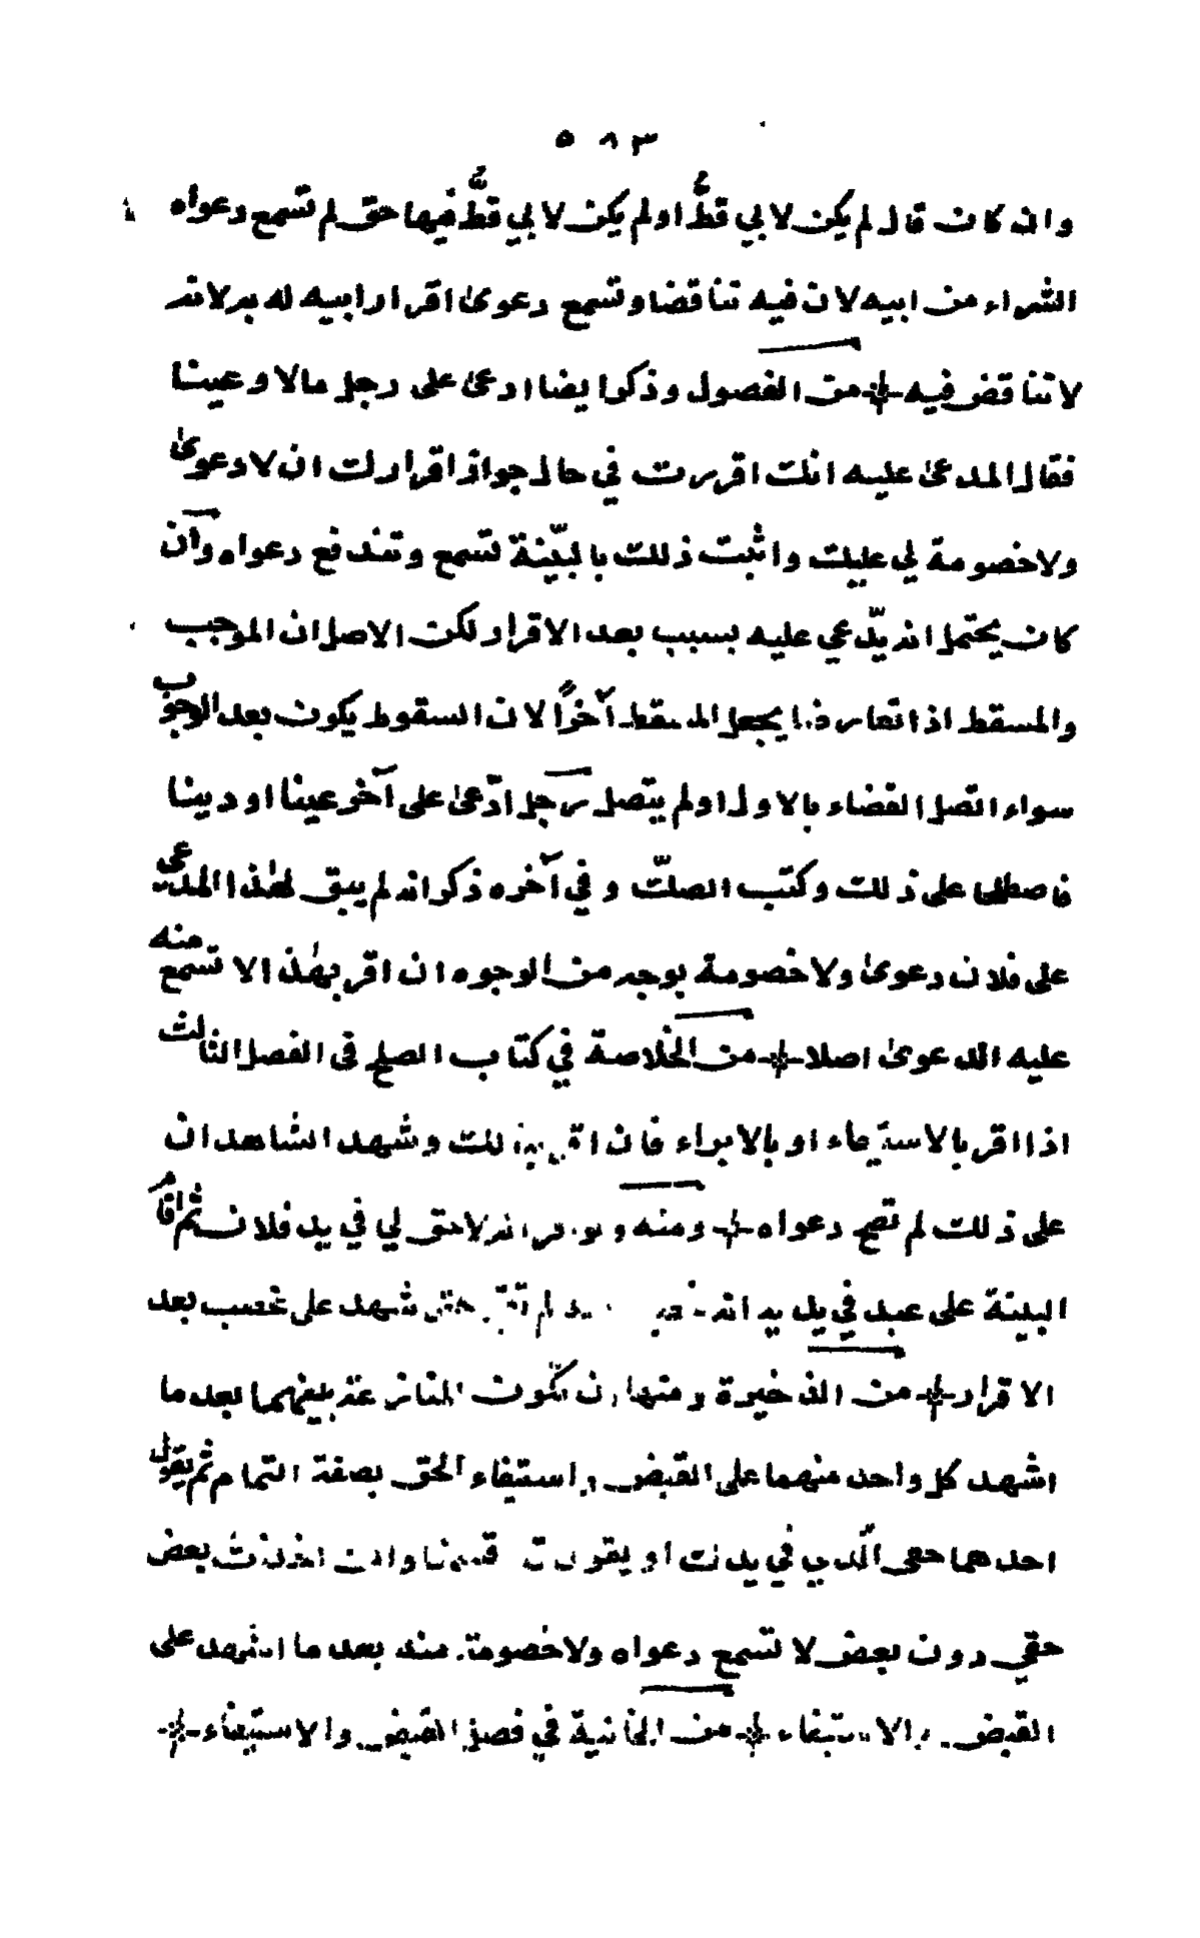 ٥٨٣
وان كان قال لم يكن لابي قطُّ اولم يكن لابي قطُّ فيها حق لم تسمع دعواه
الشراء من ابيه لان فيه تناقضا وتسمع دعوىٰ اقرار ابيه له به لانه
لا تناقض فيه من الفصول وذكر ايضا ادعىٰ على رجل مالا او عينا
فقال المدعىٰ عليه انك اقررت في حال جواز اقرارك ان لا دعوىٰ
ولا خصومة لي عليك واثبت ذلك بالبيّنة تسمع وتندفع دعواه وآن
كان يحتمل انه يدّعي عليه بسبب بعد الاقرار لكن الاصل ان الموجب
والمسقط اذا تعارضا يجعل المسقط آخرًا لان السقوط يكون بعد الوجوب
سواء اتصل القضاء بالاول اولم يتصل رجل ادّعىٰ على آخر عينا او دينا
فاصطلحا على ذلك وكتب الصكّ وفي آخره ذكر انه لم يبق لهٰذا المدعي
على فلان دعوىٰ ولا خصومة بوجه من الوجوه ان اقر بهٰذا لا تسمع منه
عليه الدعوىٰ اصلا من الخلاصة في كتاب الصلح فى الفصل الثالث
اذا اقر بالاستيفاء او بالابراء فان اقر بذلك وشهد الشاهد ان
على ذلك لم تصح دعواه ومنه ولو اقر انه لا حق لي في يد فلان ثم اقام
البينة على عبد في يديه انه لم تقبل حتى شهد على غصب بعد
الاقرار من الذخيرة ومنها ان تكون المنازعة بينهما بعد ما
اشهد كل واحد منهما على القبض واستيفاء الحق بصفة التمام ثم يقول
احدهما حقى الّذي في يدك او يقول وانت اخذت بعض
حقي دون بعض لا تسمع دعواه ولا خصومة منه بعد ما اشهد على
القبض والاستيفاء من الخانية في فصل القبض والاستيفاء